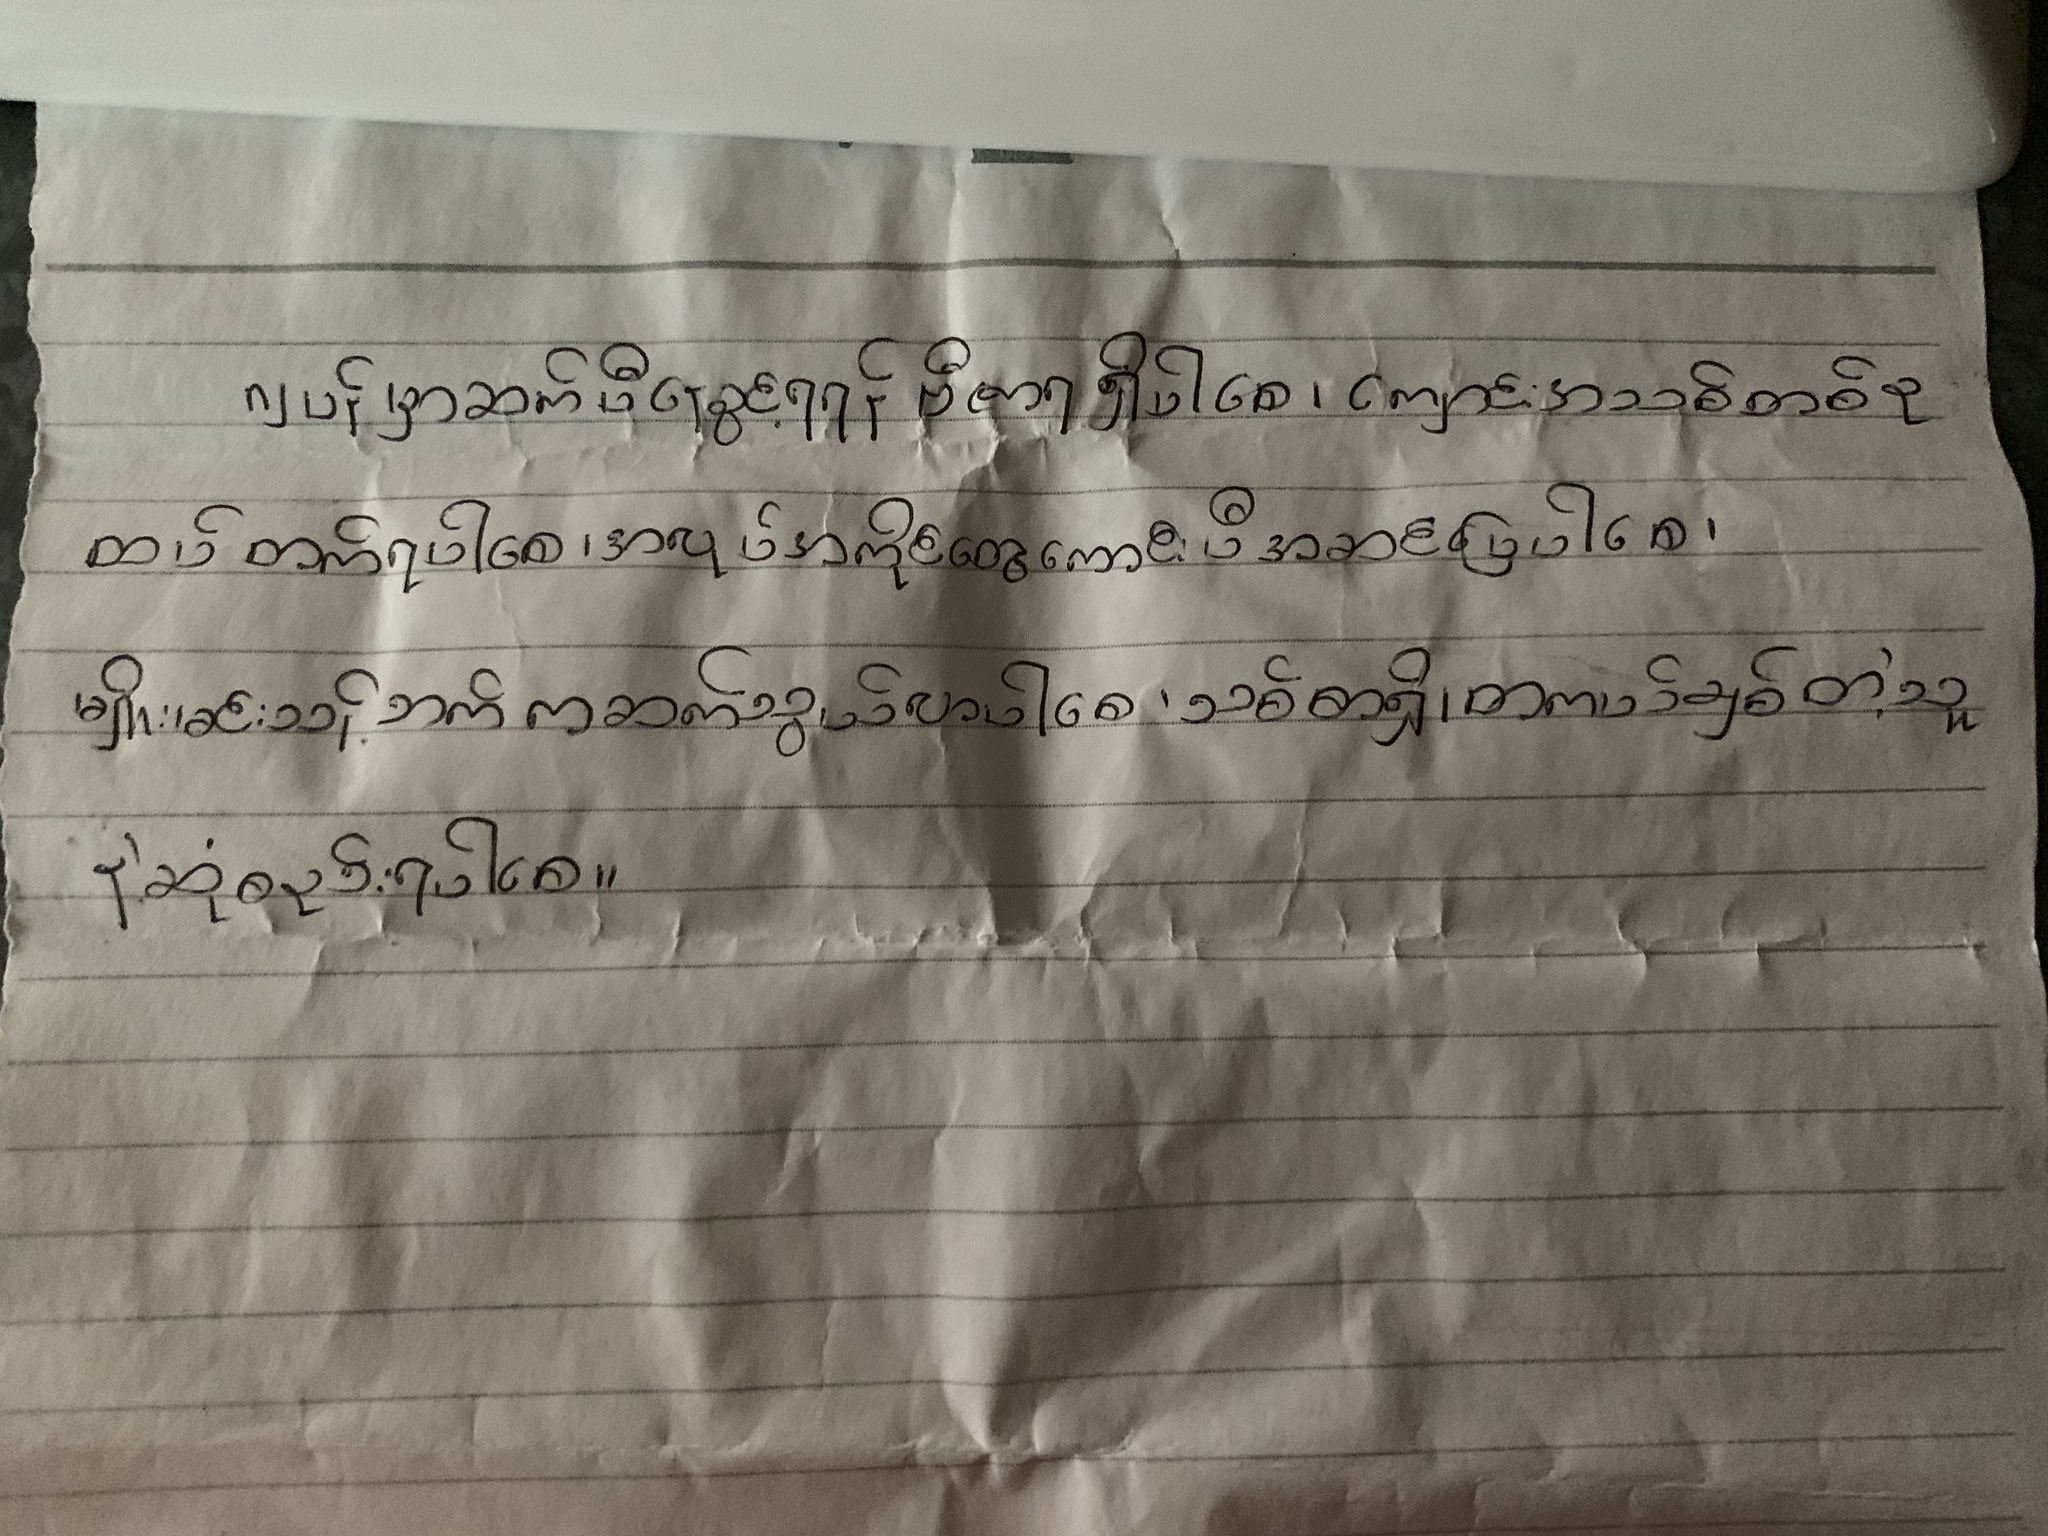 ဂျပန်မှာဆက်ပီးနေခွင့်ရရန် ဗီဇာရရှိပါစေ၊ ကျောင်းအသစ်တစ်ခု
ထပ်တက်ရပါစေ၊ အလုပ်အကိုင်တွေကောင်းပီးအဆင်ပြေပါစေ၊
မျိုးမင်းသန့်ဘက်ကဆက်သွယ်လာပါစေ၊ သစ္စာရှိ၊ တကယ်ချစ်တဲ့သူ
နဲ့ဆုံစည်းရပါစေ။